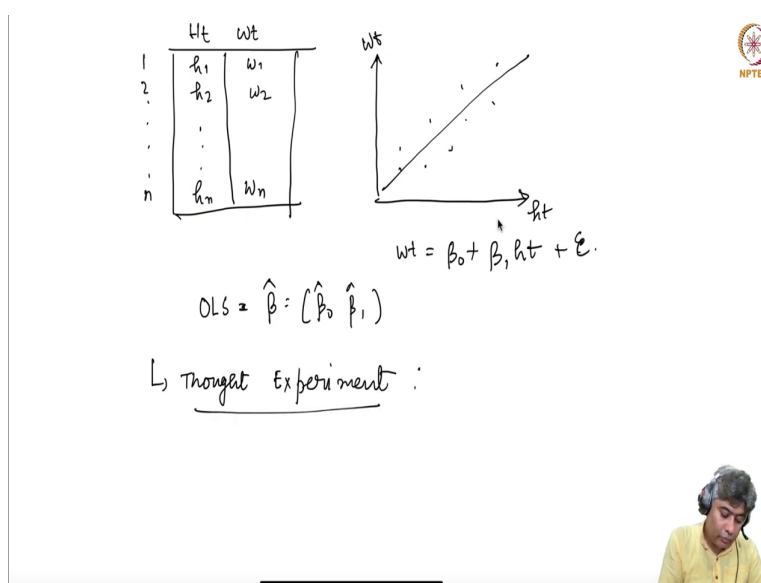 Ht wt
1 h₁ w₁
2 h₂ w₂
. . .
. . .
n hₙ wₙ
wt
ht
wt = β₀ + β₁ ht + ε.
OLS = β̂ = (β̂₀ β̂₁)
↳ Thought Experiment :
NPTE